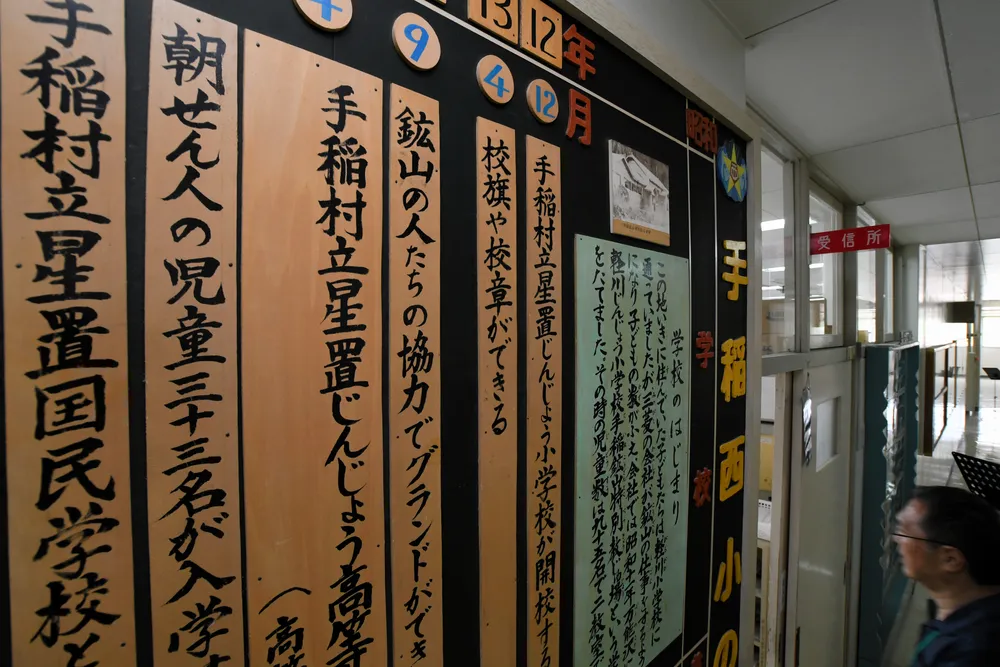 受信所
手稲西小の
昭和
学校
年
月
学校のはじまり
この地いきに住んでいた子どもたちは軽川小学校に
通っていましたが三菱の会社が鉱山の仕事をするよう
になり子どもの数がふえ会社では昭和十年万能沢に
軽川じんじょう小学校手稲鉱山特別教授場という学
をたてました。その時の児童数は九十五名で二教室で
12
12
手稲村立星置じんじょう小学校が開校する
13
4
校旗や校章ができる
9
鉱山の人たちの協力でグランドができ
4
手稲村立星置じんじょう高等
（高
朝せん人の児童三十三名が入学
手稲村立星置国民学校と